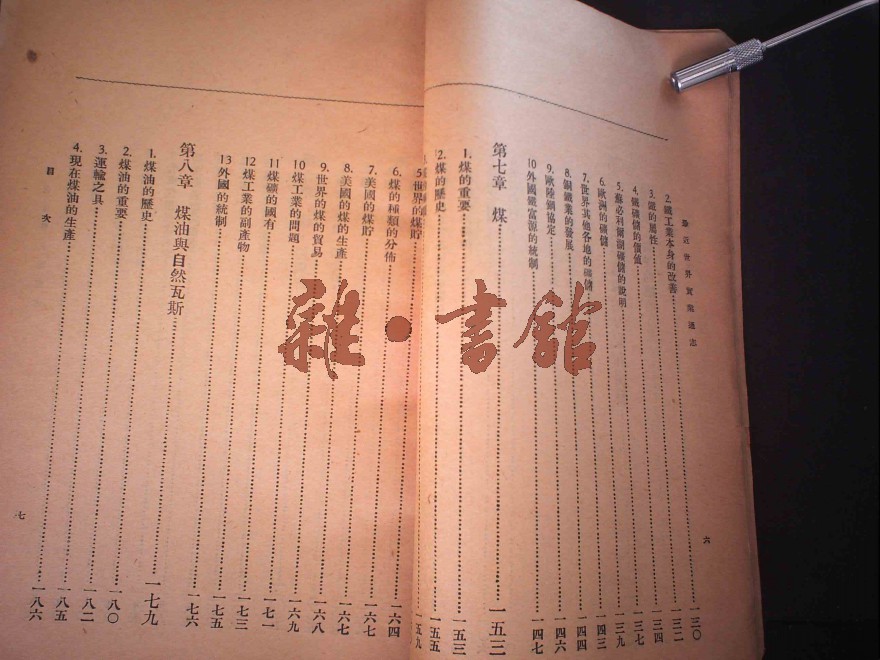 最近世界實業通志
2. 鐵工業本身的改善 一三〇
3. 鐵的屬性 一三二
4. 鐵礦儲的價值 一三四
5. 蘇必利爾湖礦儲的說明 一三七
6. 歐洲的礦儲 一三九
7. 世界其他各地的礦儲 一四三
8. 鋼鐵業的發展 一四四
9. 歐陸鋼協定 一四六
10 外國鐵富源的統制 一四七
第七章 煤 一五三
1. 煤的重要 一五三
2. 煤的歷史 一五五
一五九
六
5. 世界的煤貯 一六四
6. 煤的種類的分佈 一六七
7. 美國的煤貯 一六七
8. 美國的煤的生產 一六八
9. 世界的煤的貿易 一六九
10 煤工業的問題 一七一
11 煤礦的國有 一七三
12 煤工業的副產物 一七五
13 外國的統制 一七六
第八章 煤油與自然瓦斯 一七九
1. 煤油的歷史 一八〇
2. 煤油的重要 一八二
3. 運輸之具 一八五
4. 現在煤油的生產 一八六
目次
七
雜·書館